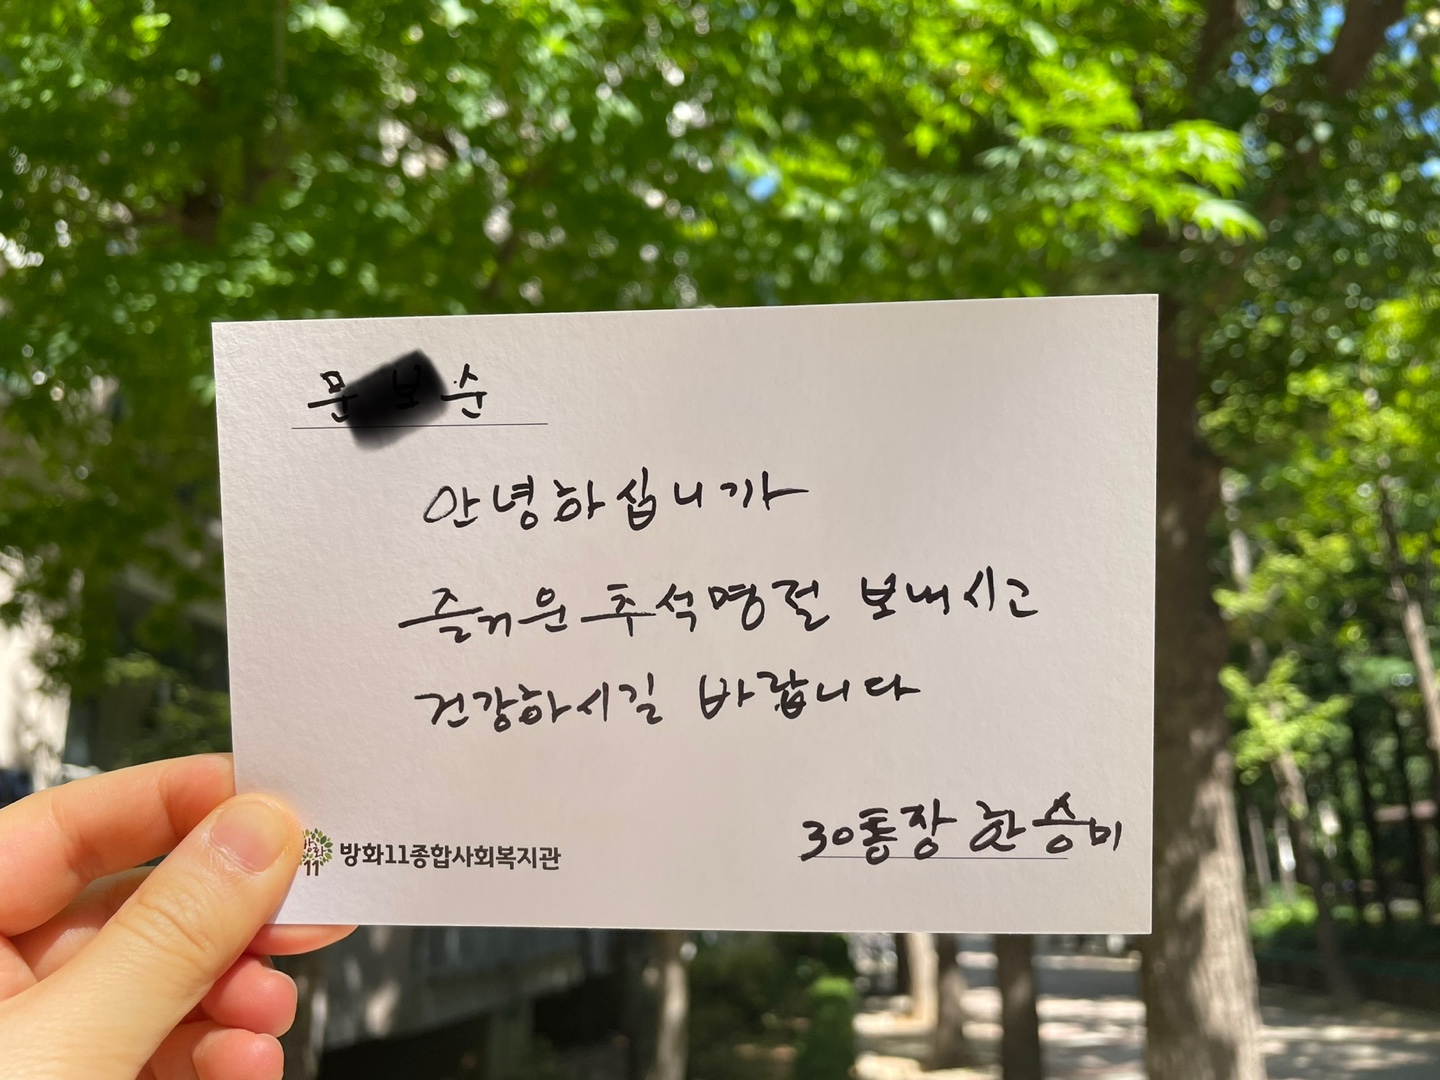 문 순
안녕하십니까
즐거운 추석명절 보내시고
건강하시길 바랍니다
30통장 한승미
방화11종합사회복지관